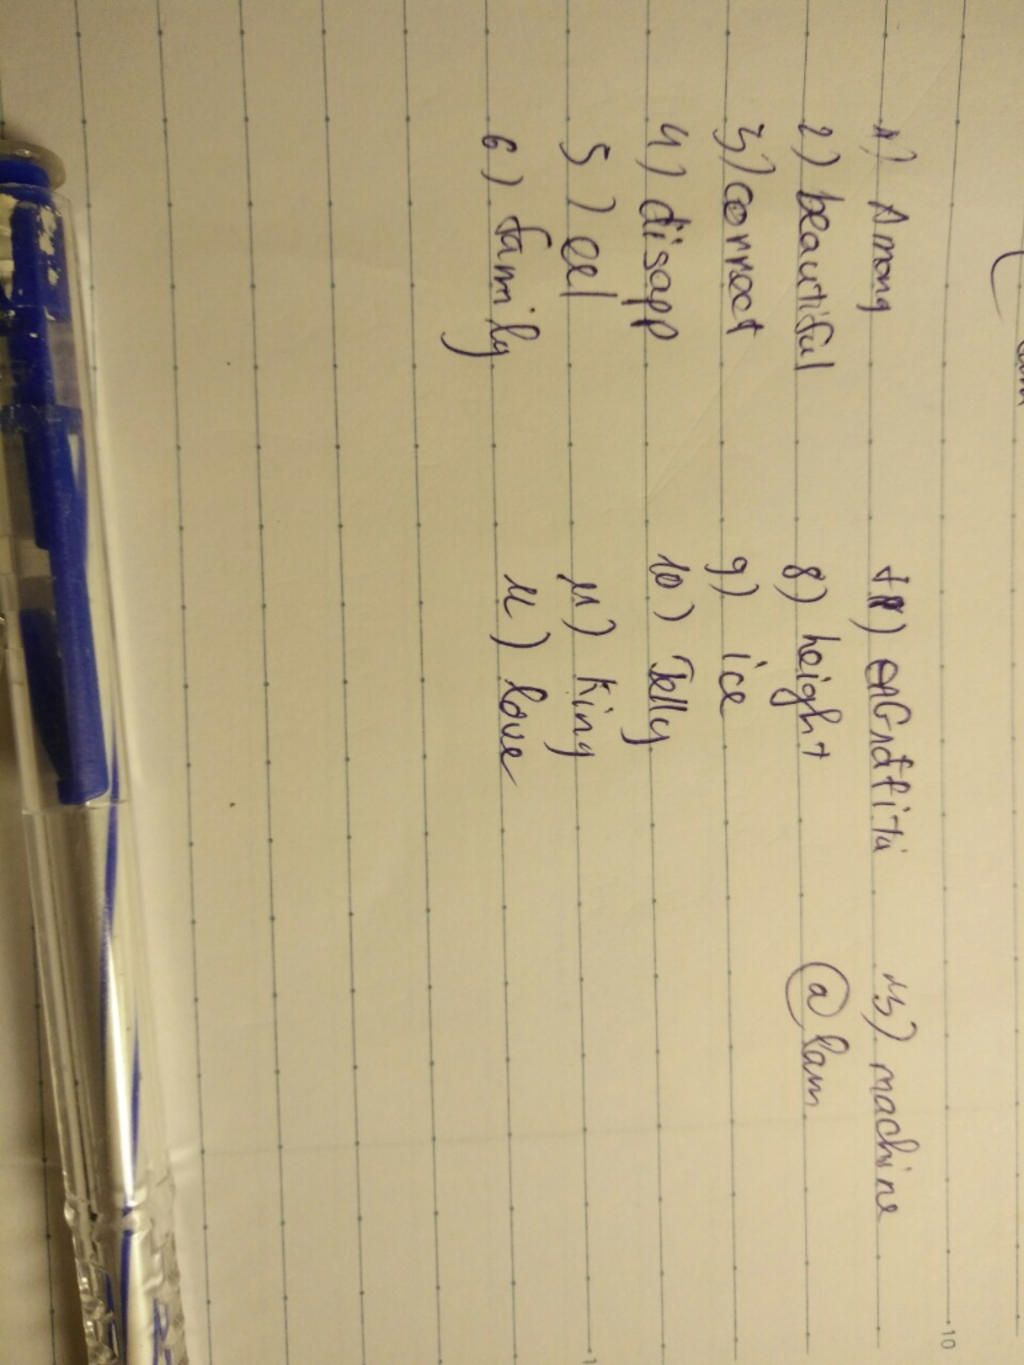 1) Among
2) beautiful
3) correct
4) disapp
5) eel
6) family
8) height
9) ice
10) Jelly
11) King
12) love
13) machine
@lam
10
1